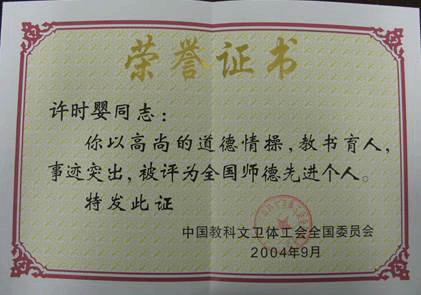 荣誉证书
许时婴同志：
你以高尚的道德情操，教书育人，
事迹突出，被评为全国师德先进个人。
特发此证
中国教科文卫体工会全国委员会
2004年9月